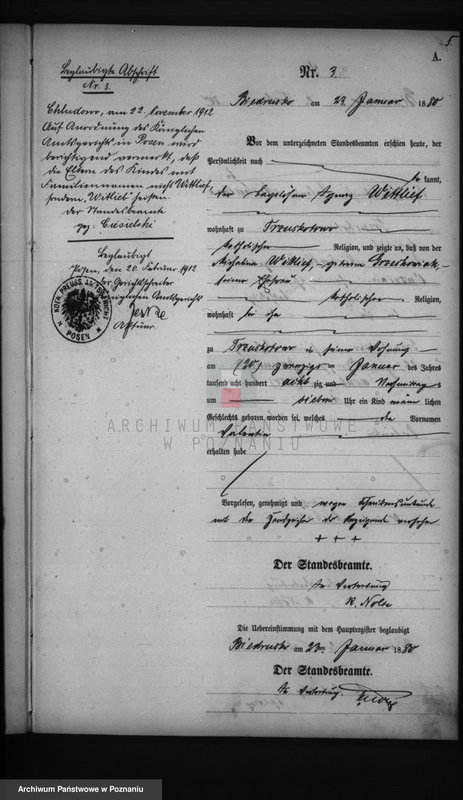 5.
A.
Beglaubigte Abschrift
Nr. 3.
Chludowo, am 22. November 1912
Auf Anordnung des Königlichen
Amtsgerichts in Posen wird
berichtigend vermerkt, daß
die Eltern des Kindes mit
Familiennamen nicht Wittlief,
sondern „Witlib“ heißen.
Der Standesbeamte
gez. Ciesielski
Beglaubigt
Posen, den 20. Februar 1912
der Gerichtsschreiber
Königlichen Amtsgericht
Aktuar
KÖN. PREUSS. AMTSGERICHT
POSEN
Nr. 3.
Biedrusko am 23. Januar 1880
Vor dem unterzeichneten Standesbeamten erschien heute, der
Persönlichkeit nach
be kannt,
der Ignatz Wittlief
wohnhaft zu
katholischer Religion, und zeigte an, daß von der
Michalina Wittlief, geborene Grzeskowiak,
seiner Ehefrau
katholischer Religion,
wohnhaft bei ihm
zu in seiner Wohnung
am (20) zwanzigsten Januar des Jahres
tausend acht hundert acht zig und Nachmittags
um sieben Uhr ein Kind männ lichen
Geschlechts geboren worden sei, welches die Vornamen
Valentin
erhalten habe
Vorgelesen, genehmigt und wegen Schreibensunkunde
mit den Handzeichen des versehen
+ + +
Der Standesbeamte.
In Vertretung
K. Nolte
Die Uebereinstimmung mit dem Hauptregister beglaubigt
Biedrusko am 23ten Januar 1880
Der Standesbeamte.
In Vertretung
ARCHIWUM PAŃSTWOWE
W POZNANIU
Archiwum Państwowe w Poznaniu